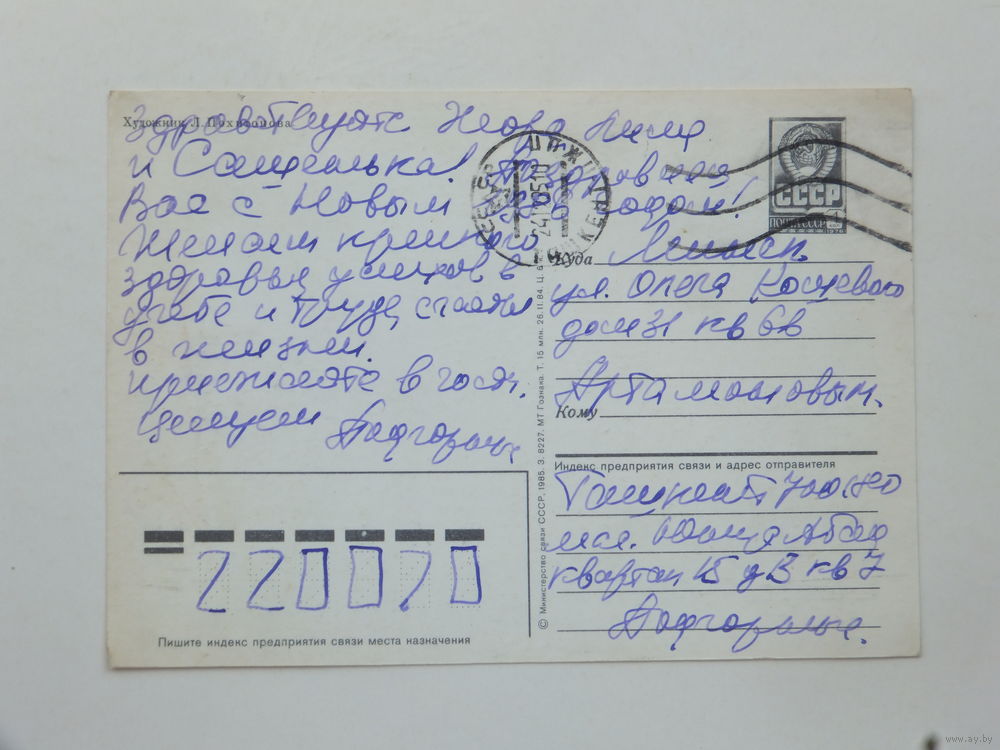 Художник Л. Похитонова
Здравствуйте Жора Лиля
и Сашенька! Поздравляем
Вас с Новым годом!
Желаем крепкого
здоровья, успехов в
учебе и труде, счастья
в жизни.
Приезжайте в гости.
Целуем
Подгорные
СССР
ПОЧТА СССР
Куда Минск.
ул. Олега Кошевого
дом 31 кв 66
Кому Артамоновым.
Индекс предприятия связи и адрес отправителя
Ташкент 700180
мас. Юнус Абад
квартал 15 д 3 кв 7
Подгорные.
220070
Пишите индекс предприятия связи места назначения
© Министерство связи СССР, 1985. З. 8227. МТ Гознака. Т. 15 млн. 26.11.84. Ц.
www.ay.by